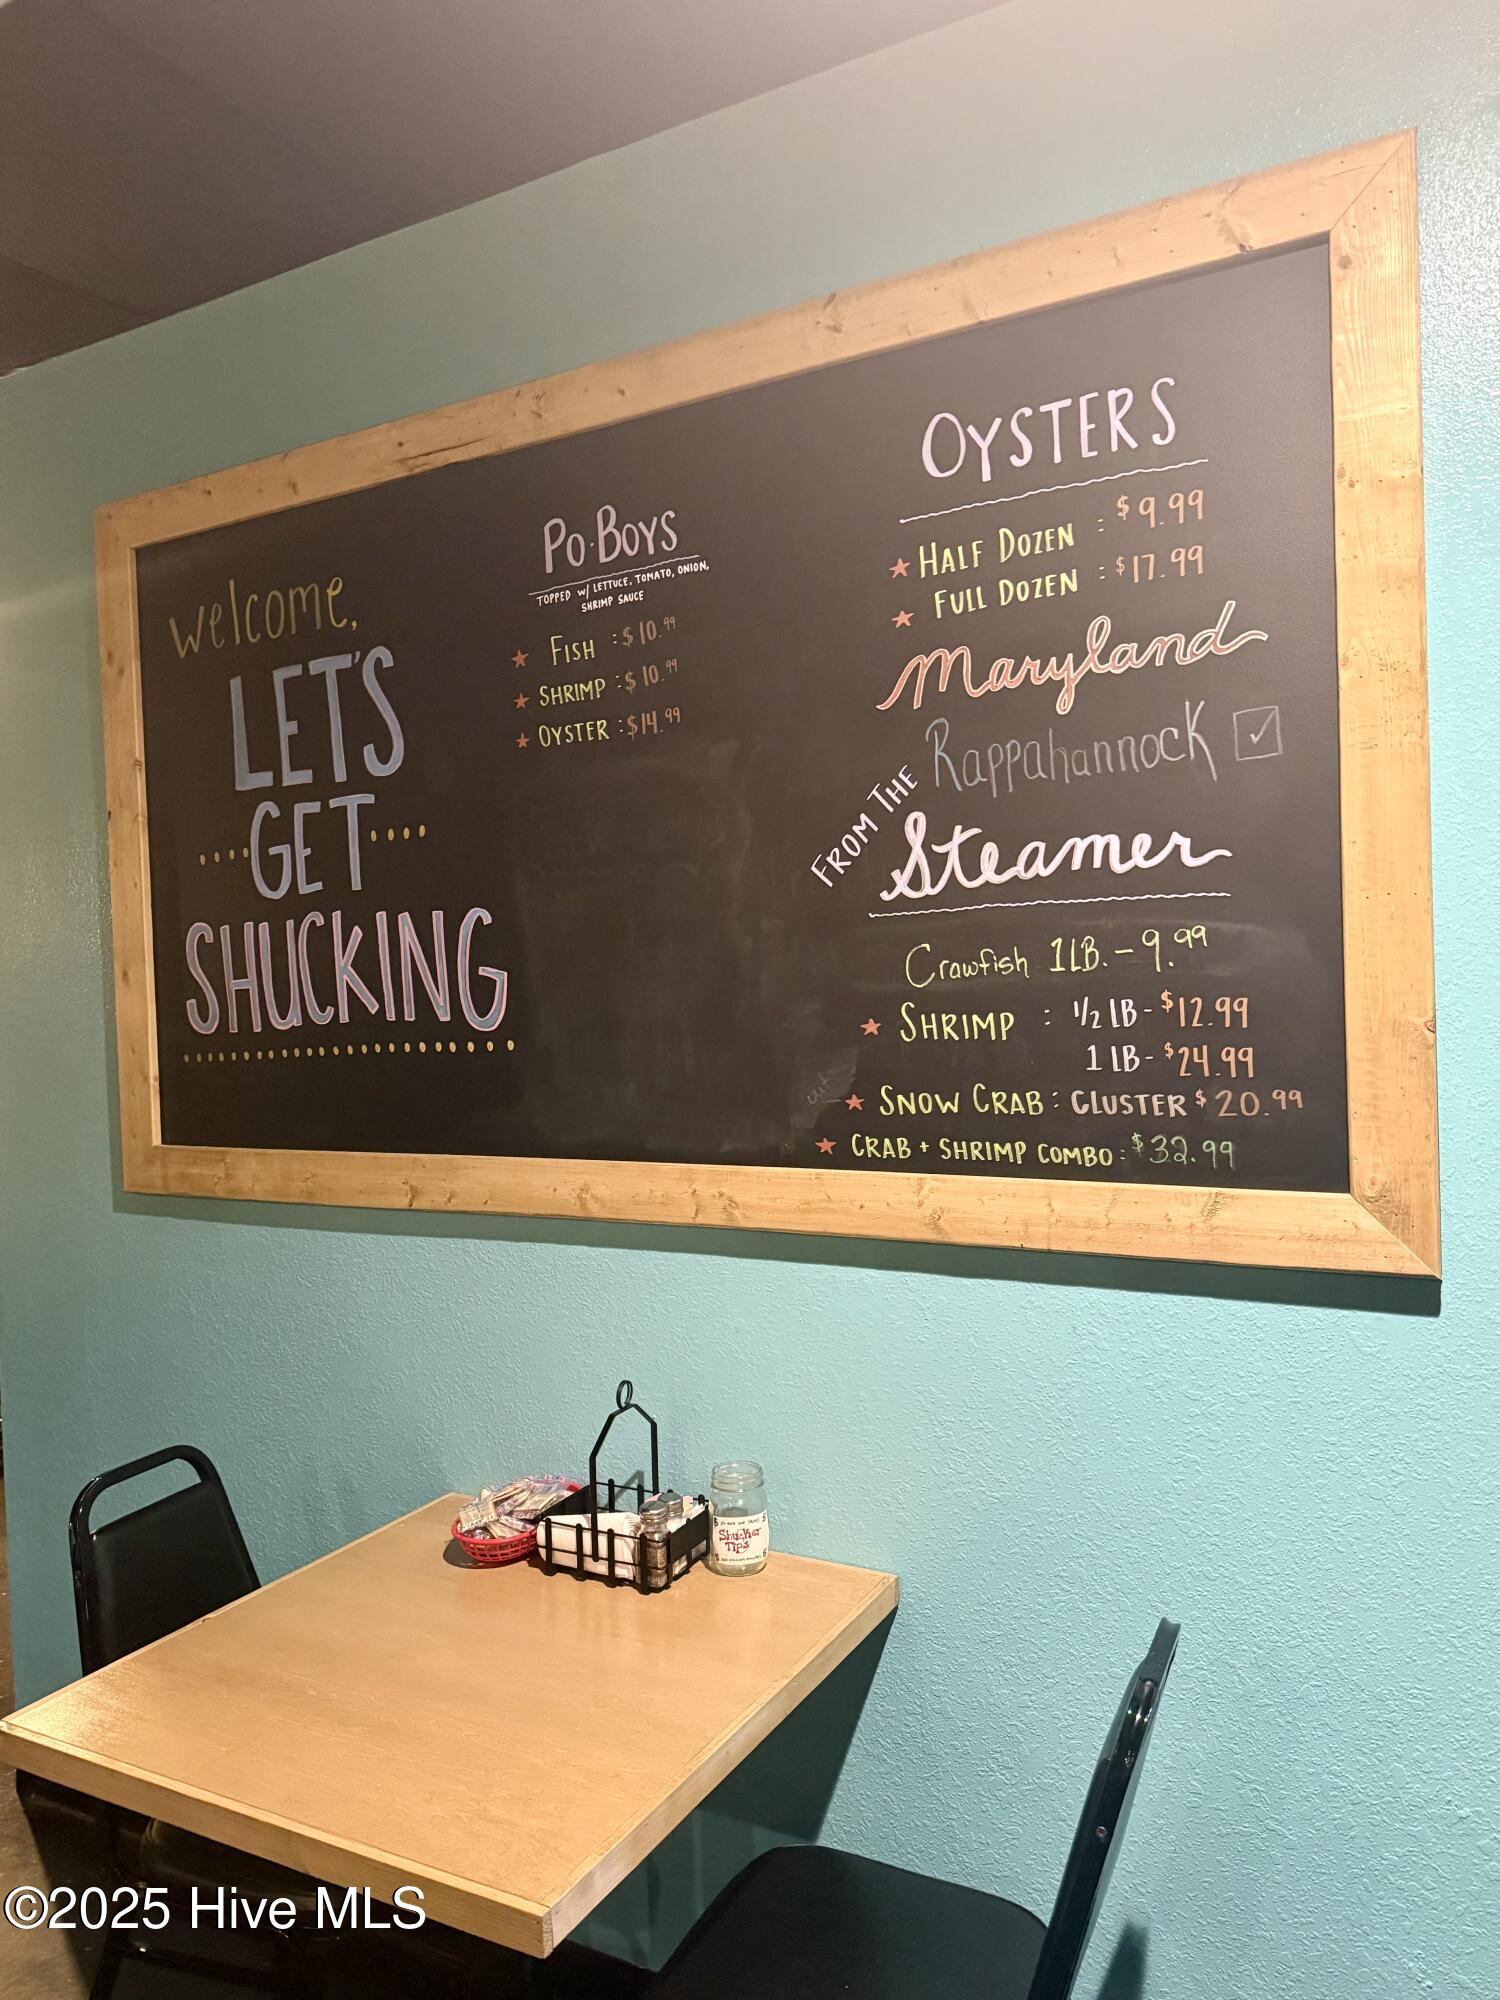 welcome,
LET'S
GET
SHUCKING
PO-BOYS
TOPPED W/ LETTUCE, TOMATO, ONION,
SHRIMP SAUCE
FISH : $10.99
SHRIMP : $10.99
OYSTER : $14.99
OYSTERS
HALF DOZEN : $9.99
FULL DOZEN : $17.99
Maryland
Rappahannock
FROM THE
Steamer
Crawfish 1LB. - 9.99
SHRIMP : 1/2 LB - $12.99
1 LB - $24.99
SNOW CRAB : CLUSTER $20.99
out
CRAB + SHRIMP COMBO : $32.99
Shucker
TIPS
©2025 Hive MLS